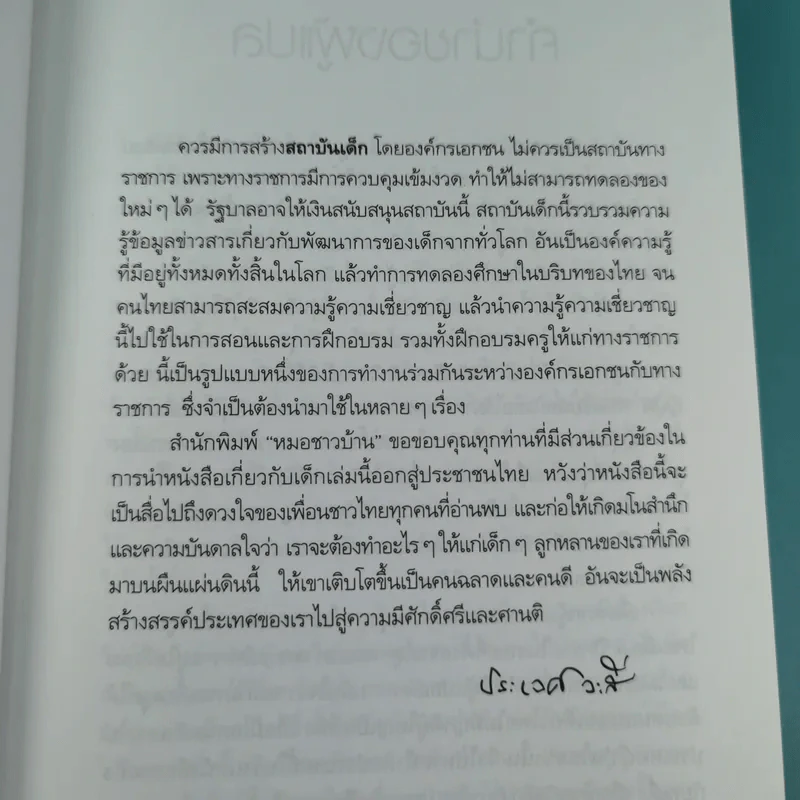 ควรมีการสร้างสถาบันเด็ก โดยองค์กรเอกชน ไม่ควรเป็นสถาบันทาง
ราชการ เพราะทางราชการมีการควบคุมเข้มงวด ทำให้ไม่สามารถทดลองของ
ใหม่ ๆ ได้ รัฐบาลอาจให้เงินสนับสนุนสถาบันนี้ สถาบันเด็กนี้รวบรวมความ
รู้ข้อมูลข่าวสารเกี่ยวกับพัฒนาการของเด็กจากทั่วโลก อันเป็นองค์ความรู้
ที่มีอยู่ทั้งหมดทั้งสิ้นในโลก แล้วทำการทดลองศึกษาในบริบทของไทย จน
คนไทยสามารถสะสมความรู้ความเชี่ยวชาญ แล้วนำความรู้ความเชี่ยวชาญ
นี้ไปใช้ในการสอนและการฝึกอบรม รวมทั้งฝึกอบรมครูให้แก่ทางราชการ
ด้วย นี้เป็นรูปแบบหนึ่งของการทำงานร่วมกันระหว่างองค์กรเอกชนกับทาง
ราชการ ซึ่งจำเป็นต้องนำมาใช้ในหลาย ๆ เรื่อง
สำนักพิมพ์ “หมอชาวบ้าน” ขอขอบคุณทุกท่านที่มีส่วนเกี่ยวข้องใน
การนำหนังสือเกี่ยวกับเด็กเล่มนี้ออกสู่ประชาชนไทย หวังว่าหนังสือนี้จะ
เป็นสื่อไปถึงดวงใจของเพื่อนชาวไทยทุกคนที่อ่านพบ และก่อให้เกิดมโนสำนึก
และความบันดาลใจว่า เราจะต้องทำอะไร ๆ ให้แก่เด็ก ๆ ลูกหลานของเราที่เกิด
มาบนผืนแผ่นดินนี้ ให้เขาเติบโตขึ้นเป็นคนฉลาดและคนดี อันจะเป็นพลัง
สร้างสรรค์ประเทศของเราไปสู่ความมีศักดิ์ศรีและศานติ
ประเวศ วะสี